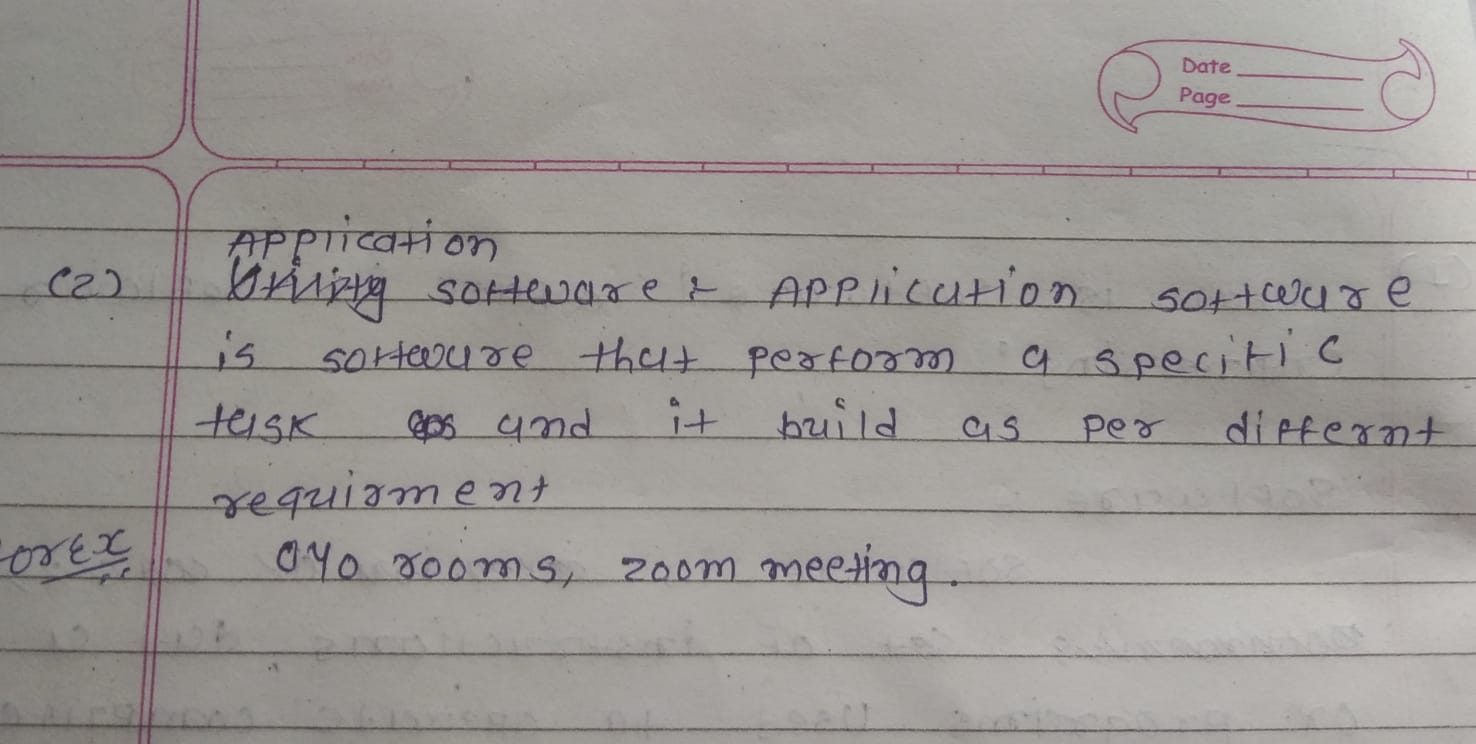 Date
Page
Application
(2) Utility software :- Application software
is software that perform a specific
task and it build as per differnt
requirment
for Ex oyo rooms, zoom meeting.